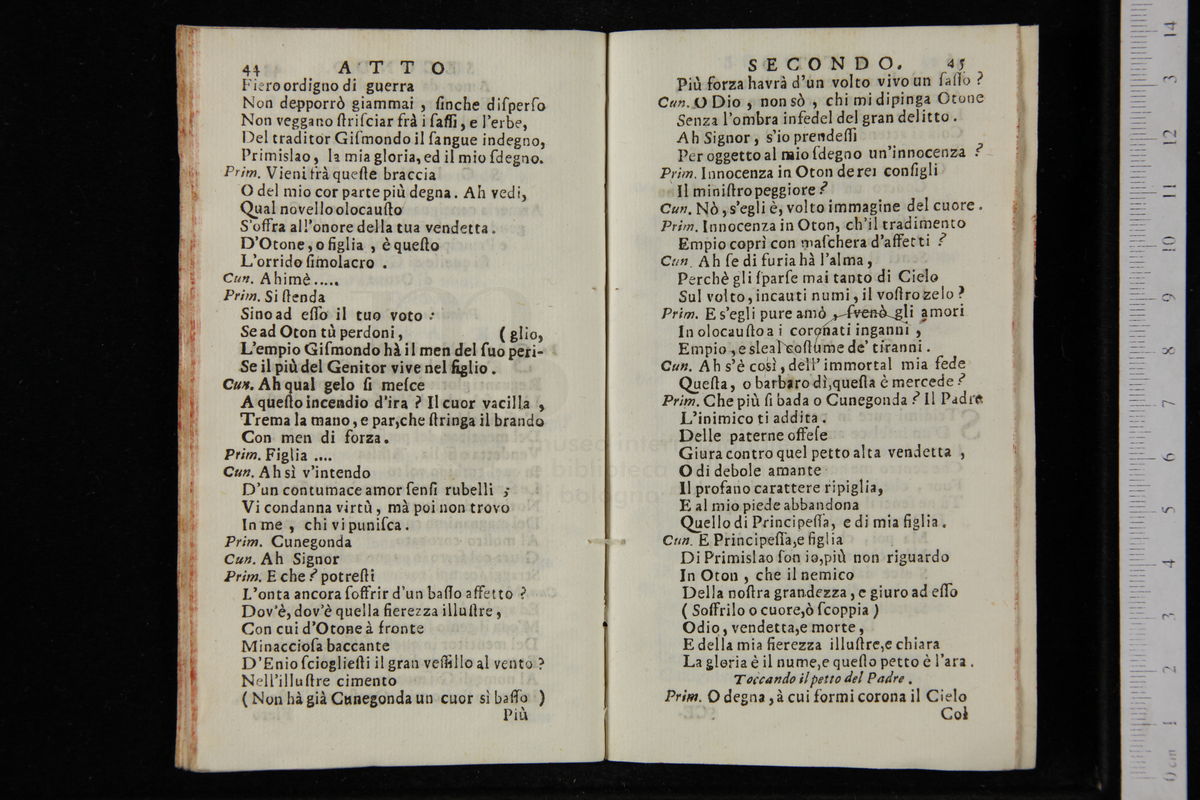 44 ATTO
Fiero ordigno di guerra
Non depporrò giammai , finche diſperſo
Non veggano ſtriſciar frà i ſaſſi, e l'erbe,
Del traditor Giſmondo il ſangue indegno,
Primislao, la mia gloria, ed il mio ſdegno.
Prim. Vieni frà queſte braccia
O del mio cor parte più degna. Ah vedi,
Qual novello olocauſto
S'offra all'onore della tua vendetta.
D'Otone, o figlia , è queſto
L'orrido ſimolacro .
Cun. Ahimè.....
Prim. Si ſtenda
Sino ad eſſo il tuo voto :
Se ad Oton tù perdoni, ( glio,
L'empio Giſmondo hà il men del ſuo peri-
Se il più del Genitor vive nel figlio.
Cun. Ah qual gelo ſi meſce
A queſto incendio d'ira ? Il cuor vacilla ,
Trema la mano, e par, che ſtringa il brando
Con men di forza.
Prim. Figlia ....
Cun. Ah sì v'intendo
D'un contumace amor ſenſi rubelli ;
Vi condanna virtù, mà poi non trovo
In me , chi vi puniſca.
Prim. Cunegonda
Cun. Ah Signor
Prim. E che? potreſti
L'onta ancora ſoffrir d'un baſſo affetto ?
Dov'è, dov'è quella fierezza illuſtre,
Con cui d'Otone à fronte
Minaccioſa baccante
D'Enio ſcioglieſti il gran veſſillo al vento ?
Nell'illuſtre cimento
( Non hà già Cunegonda un cuor sì baſſo )
Più
SECONDO. 45
Più forza havrà d'un volto vivo un ſaſſo ?
Cun. O Dio , non sò , chi mi dipinga Otone
Senza l'ombra infedel del gran delitto.
Ah Signor, s'io prendeſſi
Per oggetto al mio ſdegno un'innocenza ?
Prim. Innocenza in Oton de rei conſigli
Il miniſtro peggiore?
Cun. Nò, s'egli è, volto immagine del cuore.
Prim. Innocenza in Oton, ch'il tradimento
Empio coprì con maſchera d'affetti ?
Cun. Ah ſe di furia hà l'alma,
Perchè gli ſparſe mai tanto di Cielo
Sul volto, incauti numi, il voſtro zelo?
Prim. E s'egli pure amò , ſvenò gli amori
In olocauſto a i coronati inganni ,
Empio, e sleal coſtume de' tiranni.
Cun. Ah s'è così, dell' immortal mia fede
Queſta, o barbaro dì, queſta è mercede?
Prim. Che più ſi bada o Cunegonda? Il Padre
L'inimico ti addita.
Delle paterne offeſe
Giura contro quel petto alta vendetta ,
O di debole amante
Il profano carattere ripiglia,
E al mio piede abbandona
Quello di Principeſſa, e di mia figlia.
Cun. E Principeſſa, e figlia
Di Primislao ſon io, più non riguardo
In Oton , che il nemico
Della noſtra grandezza, e giuro ad eſſo
( Soffrilo o cuore, ò ſcoppia )
Odio, vendetta, e morte,
E della mia fierezza illuſtre, e chiara
La gloria è il nume, e queſto petto è l'ara.
Toccando il petto del Padre.
Prim. O degna, à cui formi corona il Cielo
Col
museo inter
biblioteca
di bologna
0 cm 1 2 3 4 5 6 7 8 9 10 11 12 13 14